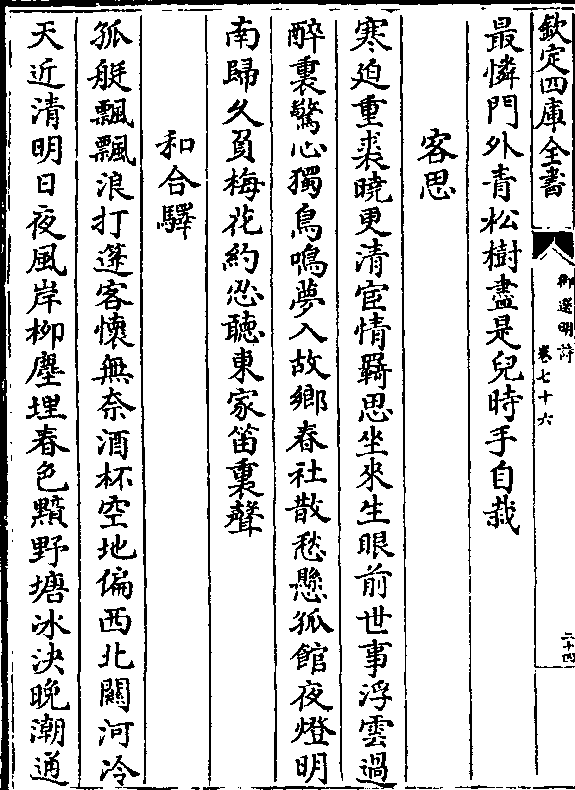 欽定四庫全書
御選明詩
卷七十六
二十四
最憐門外青松樹盡是兒時手自栽
客思
寒迫重裘曉更清宦情羇思坐來生眼前世事浮雲過
醉裏驚心獨鳥鳴夢入故鄉春社散愁懸孤館夜燈明
南歸久負梅花約恐聽東家笛裏聲
和合驛
孤艇飄飄浪打篷客懷無奈酒杯空地偏西北關河冷
天近清明日夜風岸柳塵埋春色黯野塘冰決晚潮通